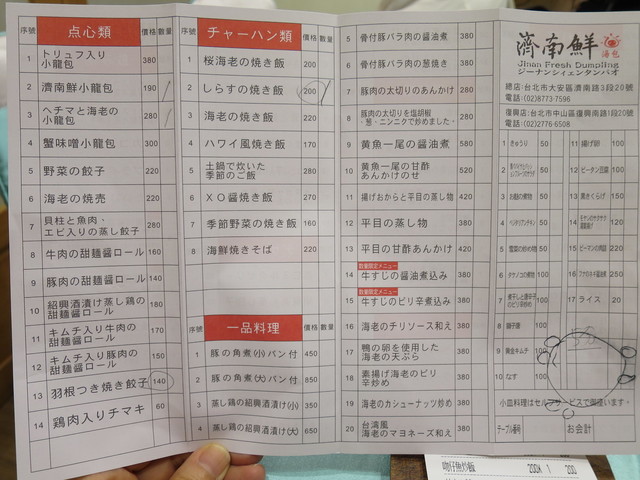 序號 点心類 價格 數量
1 トリュフ入り
小龍包 380
2 濟南鮮小龍包 190
3 ヘチマと海老の
小龍包 280
4 蟹味噌小龍包 300
5 野菜の餃子 220
6 海老の焼売 220
7 貝柱と魚肉・
エビ入りの蒸し餃子 280
8 牛肉の甜麺醤ロール 160
9 豚肉の甜麺醤ロール 140
10 紹興酒漬け蒸し鶏の
甜麺醤ロール 180
11 キムチ入り牛肉の
甜麺醤ロール 170
12 キムチ入り豚肉の
甜麺醤ロール 150
13 羽根つき焼き餃子 140
14 鶏肉入りチマキ 60
序號 チャーハン類 價格 數量
1 桜海老の焼き飯 200
2 しらすの焼き飯 200
3 海老の焼き飯 220
4 ハワイ風焼き飯 170
5 土鍋で炊いた
季節のご飯 280
6 XO醤焼き飯 270
7 季節野菜の焼き飯 160
8 海鮮焼きそば 220
序號 一品料理 價格 數量
1 豚の角煮(小)パン付 450
2 豚の角煮(大)パン付 850
3 蒸し鶏の紹興酒漬け(小) 350
4 蒸し鶏の紹興酒漬け(大) 650
5 骨付豚バラ肉の醤油煮 380
6 骨付豚バラ肉の葱焼き 380
7 豚肉の太切りの醤油煮 280
8 豚肉の太切りを塩胡椒
・葱・ニンニクで炒めました・ 280
9 黄魚一尾の醤油煮 580
10 黄魚一尾の甘酢
あんかけのせ 520
11 揚げおからと平目の炒め 420
12 平目の蒸し物 380
13 平目の甘酢あんかけ 420
数量限定メニュー
14 牛すじの醤油煮込み 380
数量限定メニュー
15 牛すじのピリ辛煮込み 380
16 海老のチリソース和え 380
17 鴨の卵を使用した
海老の天ぷら 380
18 素揚げ海老のピリ
辛炒め 380
19 海老のカシューナッツ炒め 380
20 台湾風
海老のマヨネーズ和え 380
濟南鮮 湯包
Jinan Fresh Dumpling
ジーナンシィェンタンパオ
總店:台北市大安區濟南路3段20號
電話:(02)8773-7596
復興店:台北市中山區復興南路1段20號
電話:(02)2776-6508
1 きゅうり 50
2 50
3 50
4 100
5 50
6 タケノコの煮物 100
7 100
8 獅子唐 100
9 黄金キムチ 100
10 なす 100
11 揚げ豆腐 100
12 ピータン豆腐 100
13 黒きくらげ 150
14 120
15 ピーマンの肉詰 220
16 250
17 ライス 20
小皿料理はセルフサービスで御座います・
テーブル番号 お会計
吻仔魚炒飯 200x 1 200